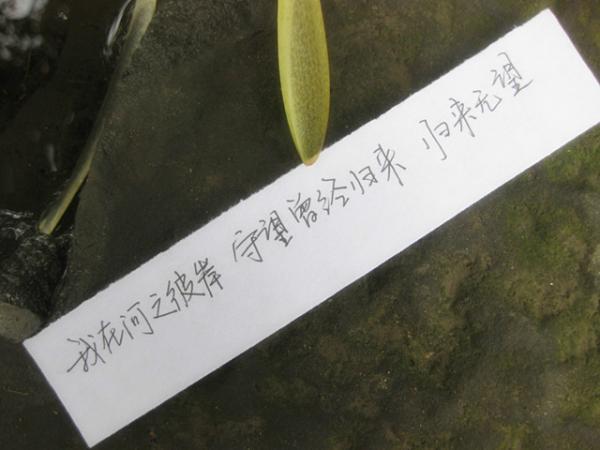 我在河之彼岸 守望曾经归来 归来无望